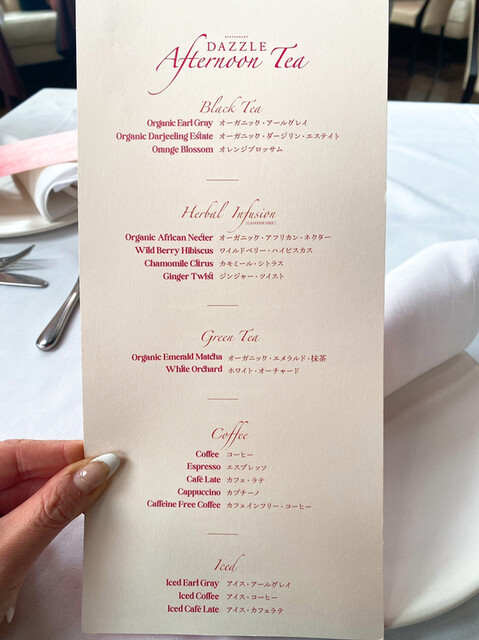 RESTAURANT
DAZZLE
Afternoon Tea
Black Tea
Organic Earl Gray オーガニック・アールグレイ
Organic Darjeeling Estate オーガニック・ダージリン・エステイト
Orange Blossom オレンジブロッサム
Herbal Infusion
(CAFFEINE FREE)
Organic African Necter オーガニック・アフリカン・ネクター
Wild Berry Hibiscus ワイルドベリー・ハイビスカス
Chamomile Citrus カモミール・シトラス
Ginger Twist ジンジャー・ツイスト
Green Tea
Organic Emerald Matcha オーガニック・エメラルド・抹茶
White Orchard ホワイト・オーチャード
Coffee
Coffee コーヒー
Espresso エスプレッソ
Café Late カフェ・ラテ
Cappuccino カプチーノ
Caffeine Free Coffee カフェインフリー・コーヒー
Iced
Iced Earl Gray アイス・アールグレイ
Iced Coffee アイス・コーヒー
Iced Café Late アイス・カフェラテ